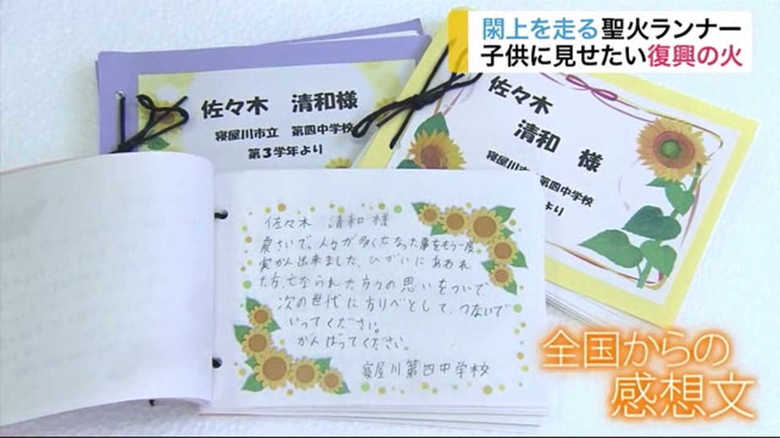 閖上を走る聖火ランナー
子供に見せたい復興の火
佐々木 清和様
寝屋川市立 第四中学校
第3学年より
佐々木
清和 様
寝屋川市立 第四中学校
佐々木 清和様
震さいで、人々が多くなくなった事をもう一度
実かん出来ました、ひがいにあわれ
た方、亡なられた方々の思いをついで
次の世代に方りべとして、つないで
いってください。
がんばってください。
寝屋川第四中学校
全国からの
感想文